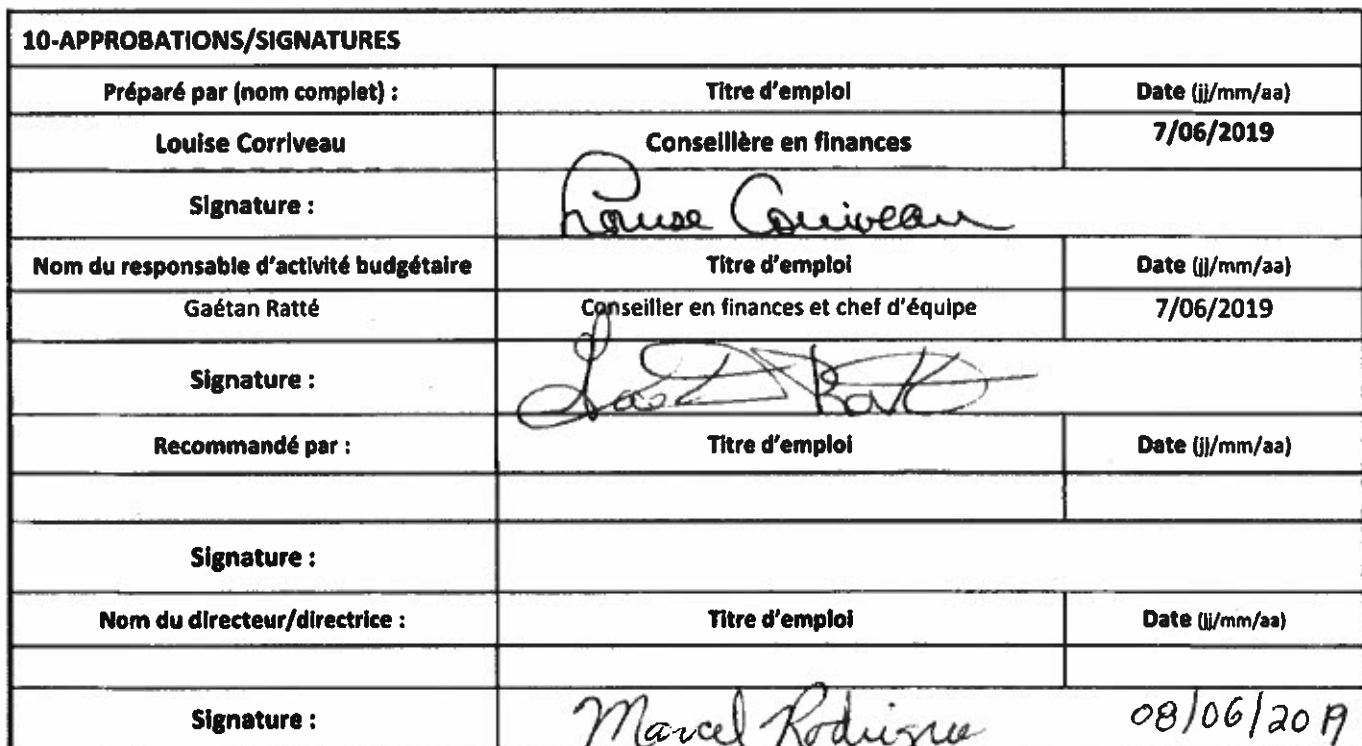 10-APPROBATIONS/SIGNATURES
Préparé par (nom complet) : Titre d'emploi Date (jj/mm/aa)
Louise Corriveau Conseillère en finances 7/06/2019
Signature : Louise Corriveau
Nom du responsable d'activité budgétaire Titre d'emploi Date (jj/mm/aa)
Gaétan Ratté Conseiller en finances et chef d'équipe 7/06/2019
Signature :
Recommandé par : Titre d'emploi Date (jj/mm/aa)
Signature :
Nom du directeur/directrice : Titre d'emploi Date (jj/mm/aa)
Signature : Marcel Rodrigue 08/06/2019